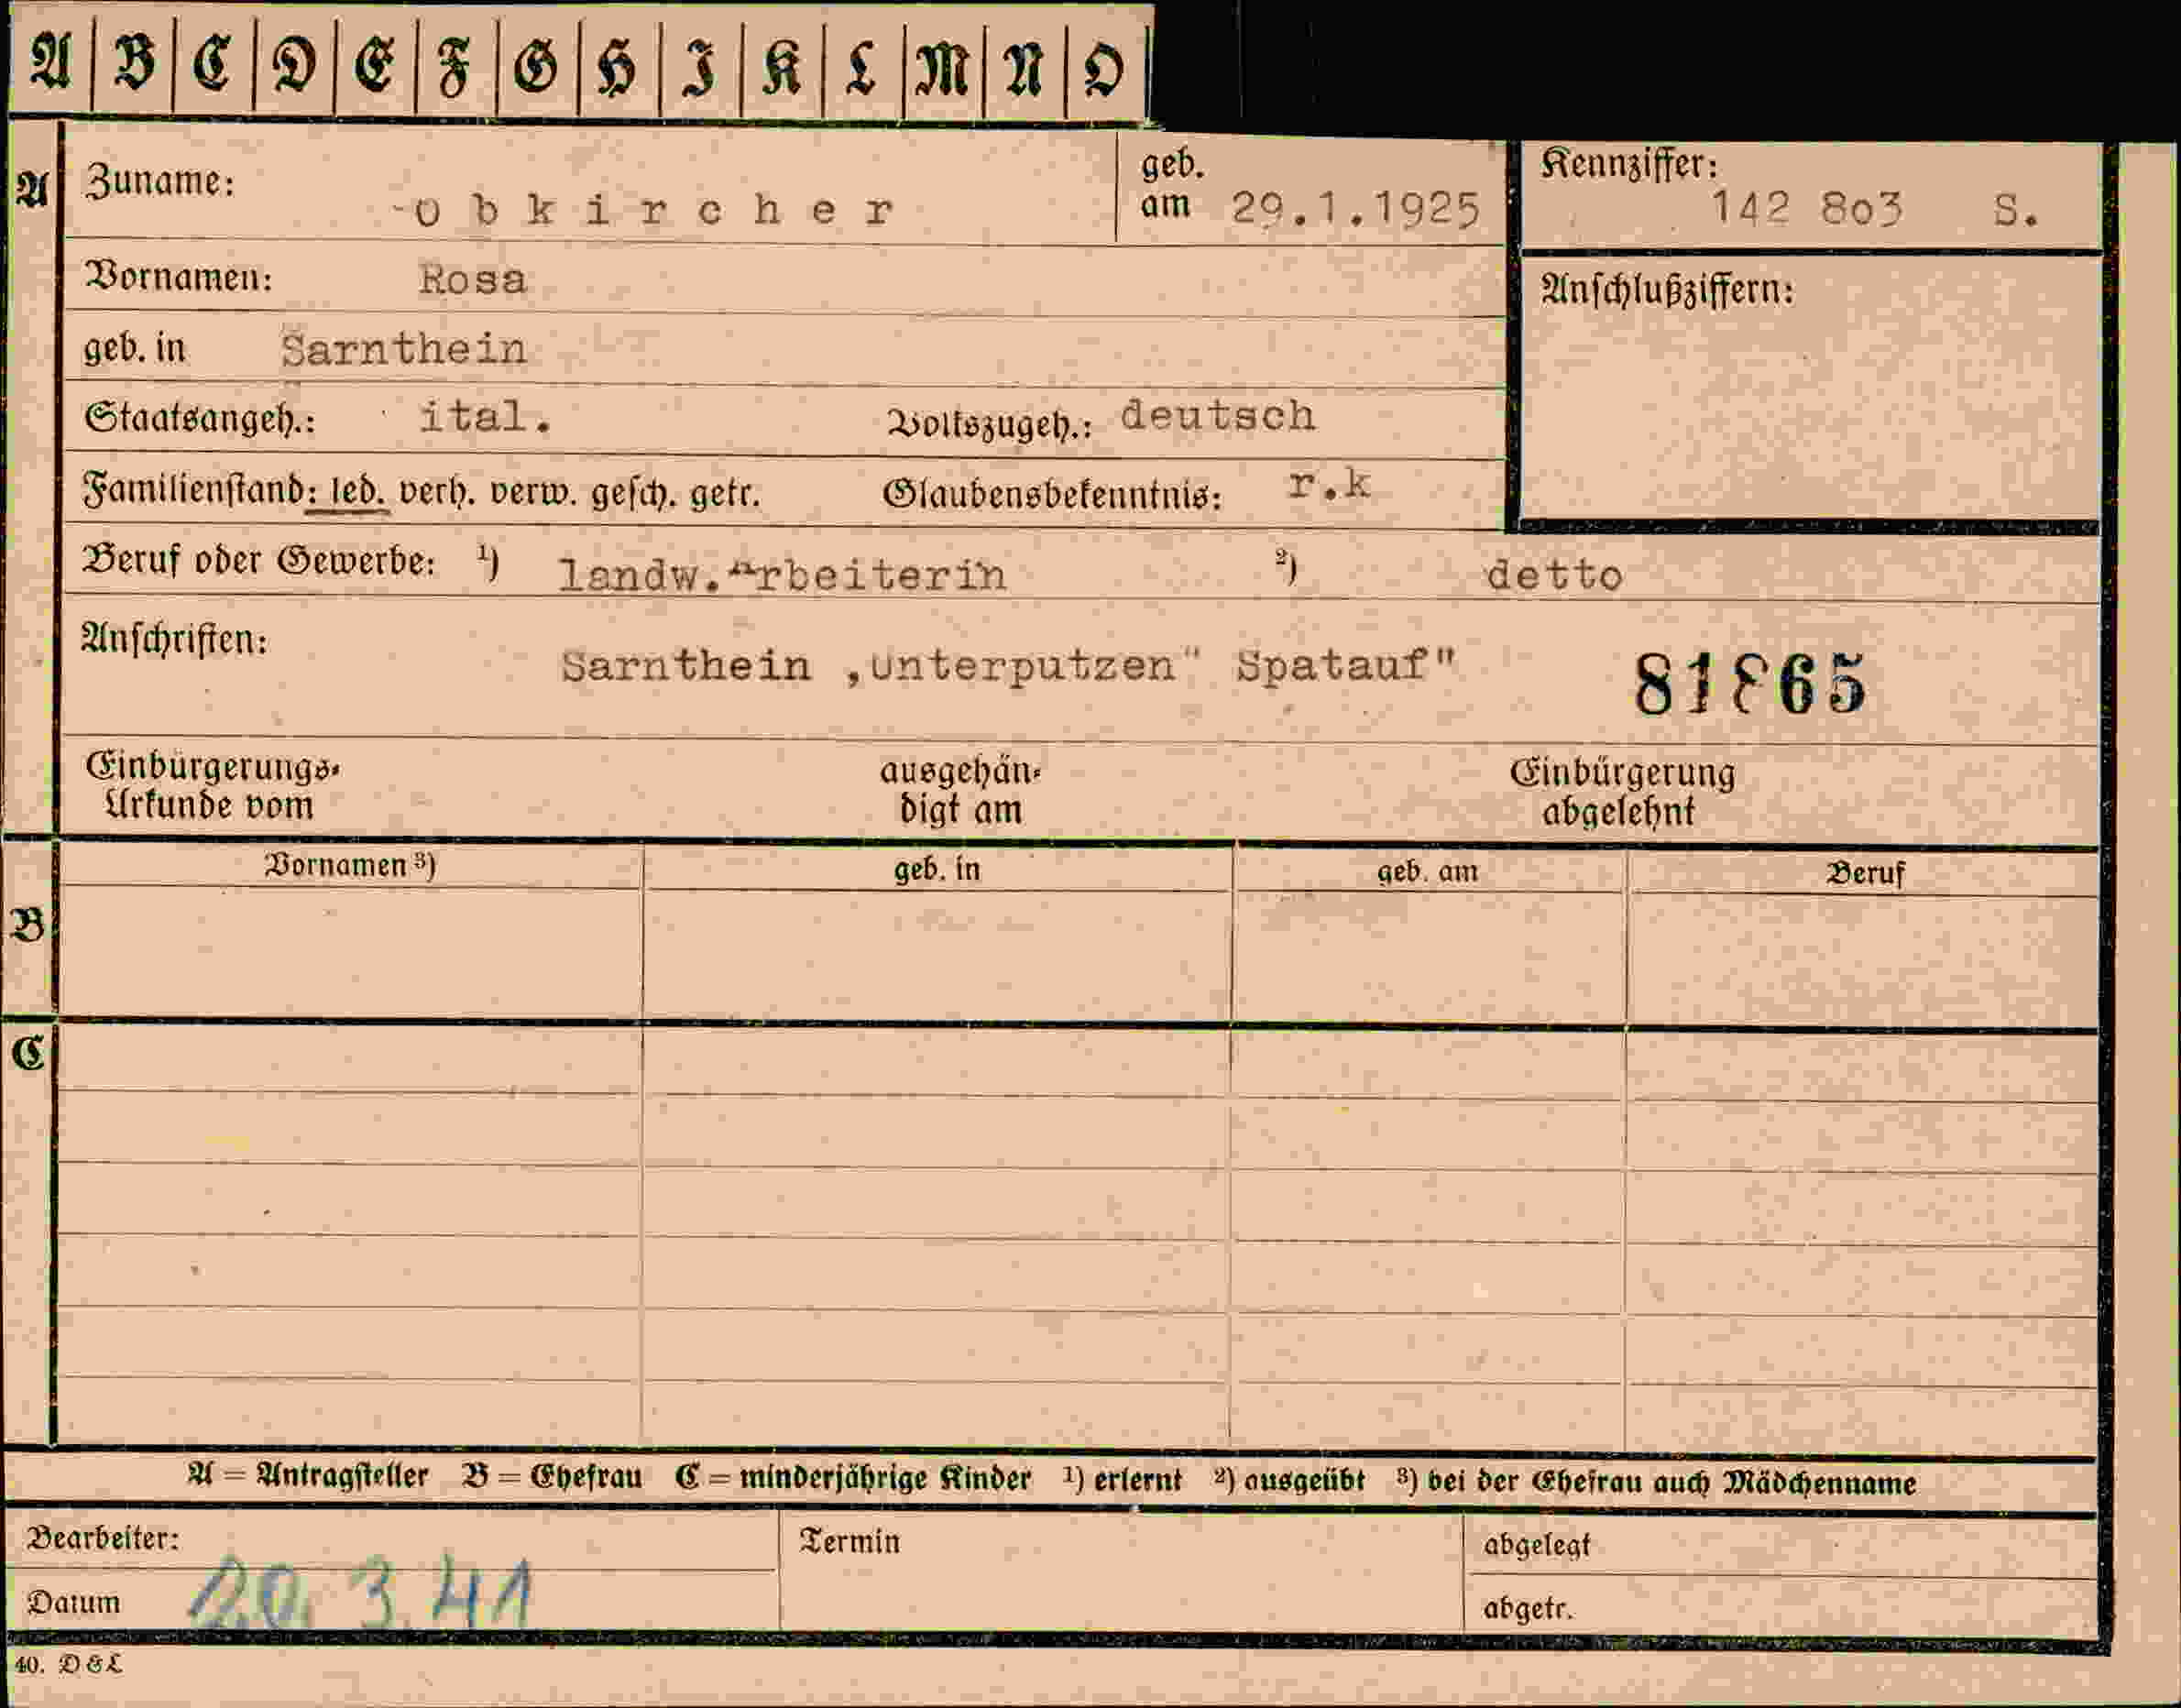 A B C D E F G H I K L M N O
A Zuname: Obkircher geb. am 29.1.1925 Kennziffer: 142 803 S.
Vornamen: Rosa Anschlußziffern:
geb. in Sarnthein
Staatsangeh.: ital. Volkszugeh.: deutsch
Familienstand: led. verh. verw. gesch. getr. Glaubensbekenntnis: r.k
Beruf oder Gewerbe: ¹) landw.Arbeiterin ²) detto
Anschriften: Sarnthein „unterputzen" Spatauf" 81865
Einbürgerungs-Urkunde vom ausgehändigt am Einbürgerung abgelehnt
Vornamen ³) geb. in geb. am Beruf
B
C
A = Antragsteller B = Ehefrau C = minderjährige Kinder ¹) erlernt ²) ausgeübt ³) bei der Ehefrau auch Mädchenname
Bearbeiter: Termin abgelegt
Datum 20. 3. 41 abgetr.
40. D&L